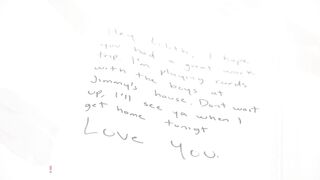 Hey Lilith, I hope
you had a great work
trip. I'm playing cards
with the boys at
Jimmy's house. Dont wait
up, I'll see ya when I
get home tonigt
Love You.